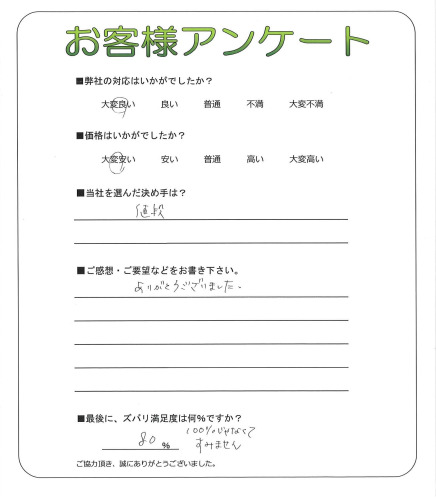 お客様アンケート
■弊社の対応はいかがでしたか?
大変良い 良い 普通 不満 大変不満
■価格はいかがでしたか?
大変安い 安い 普通 高い 大変高い
■当社を選んだ決め手は?
値段
■ご感想・ご要望などをお書き下さい。
ありがとうございました。
■最後に、ズバリ満足度は何%ですか?
80 % 100%じゃなくて
すみません
ご協力頂き、誠にありがとうございました。